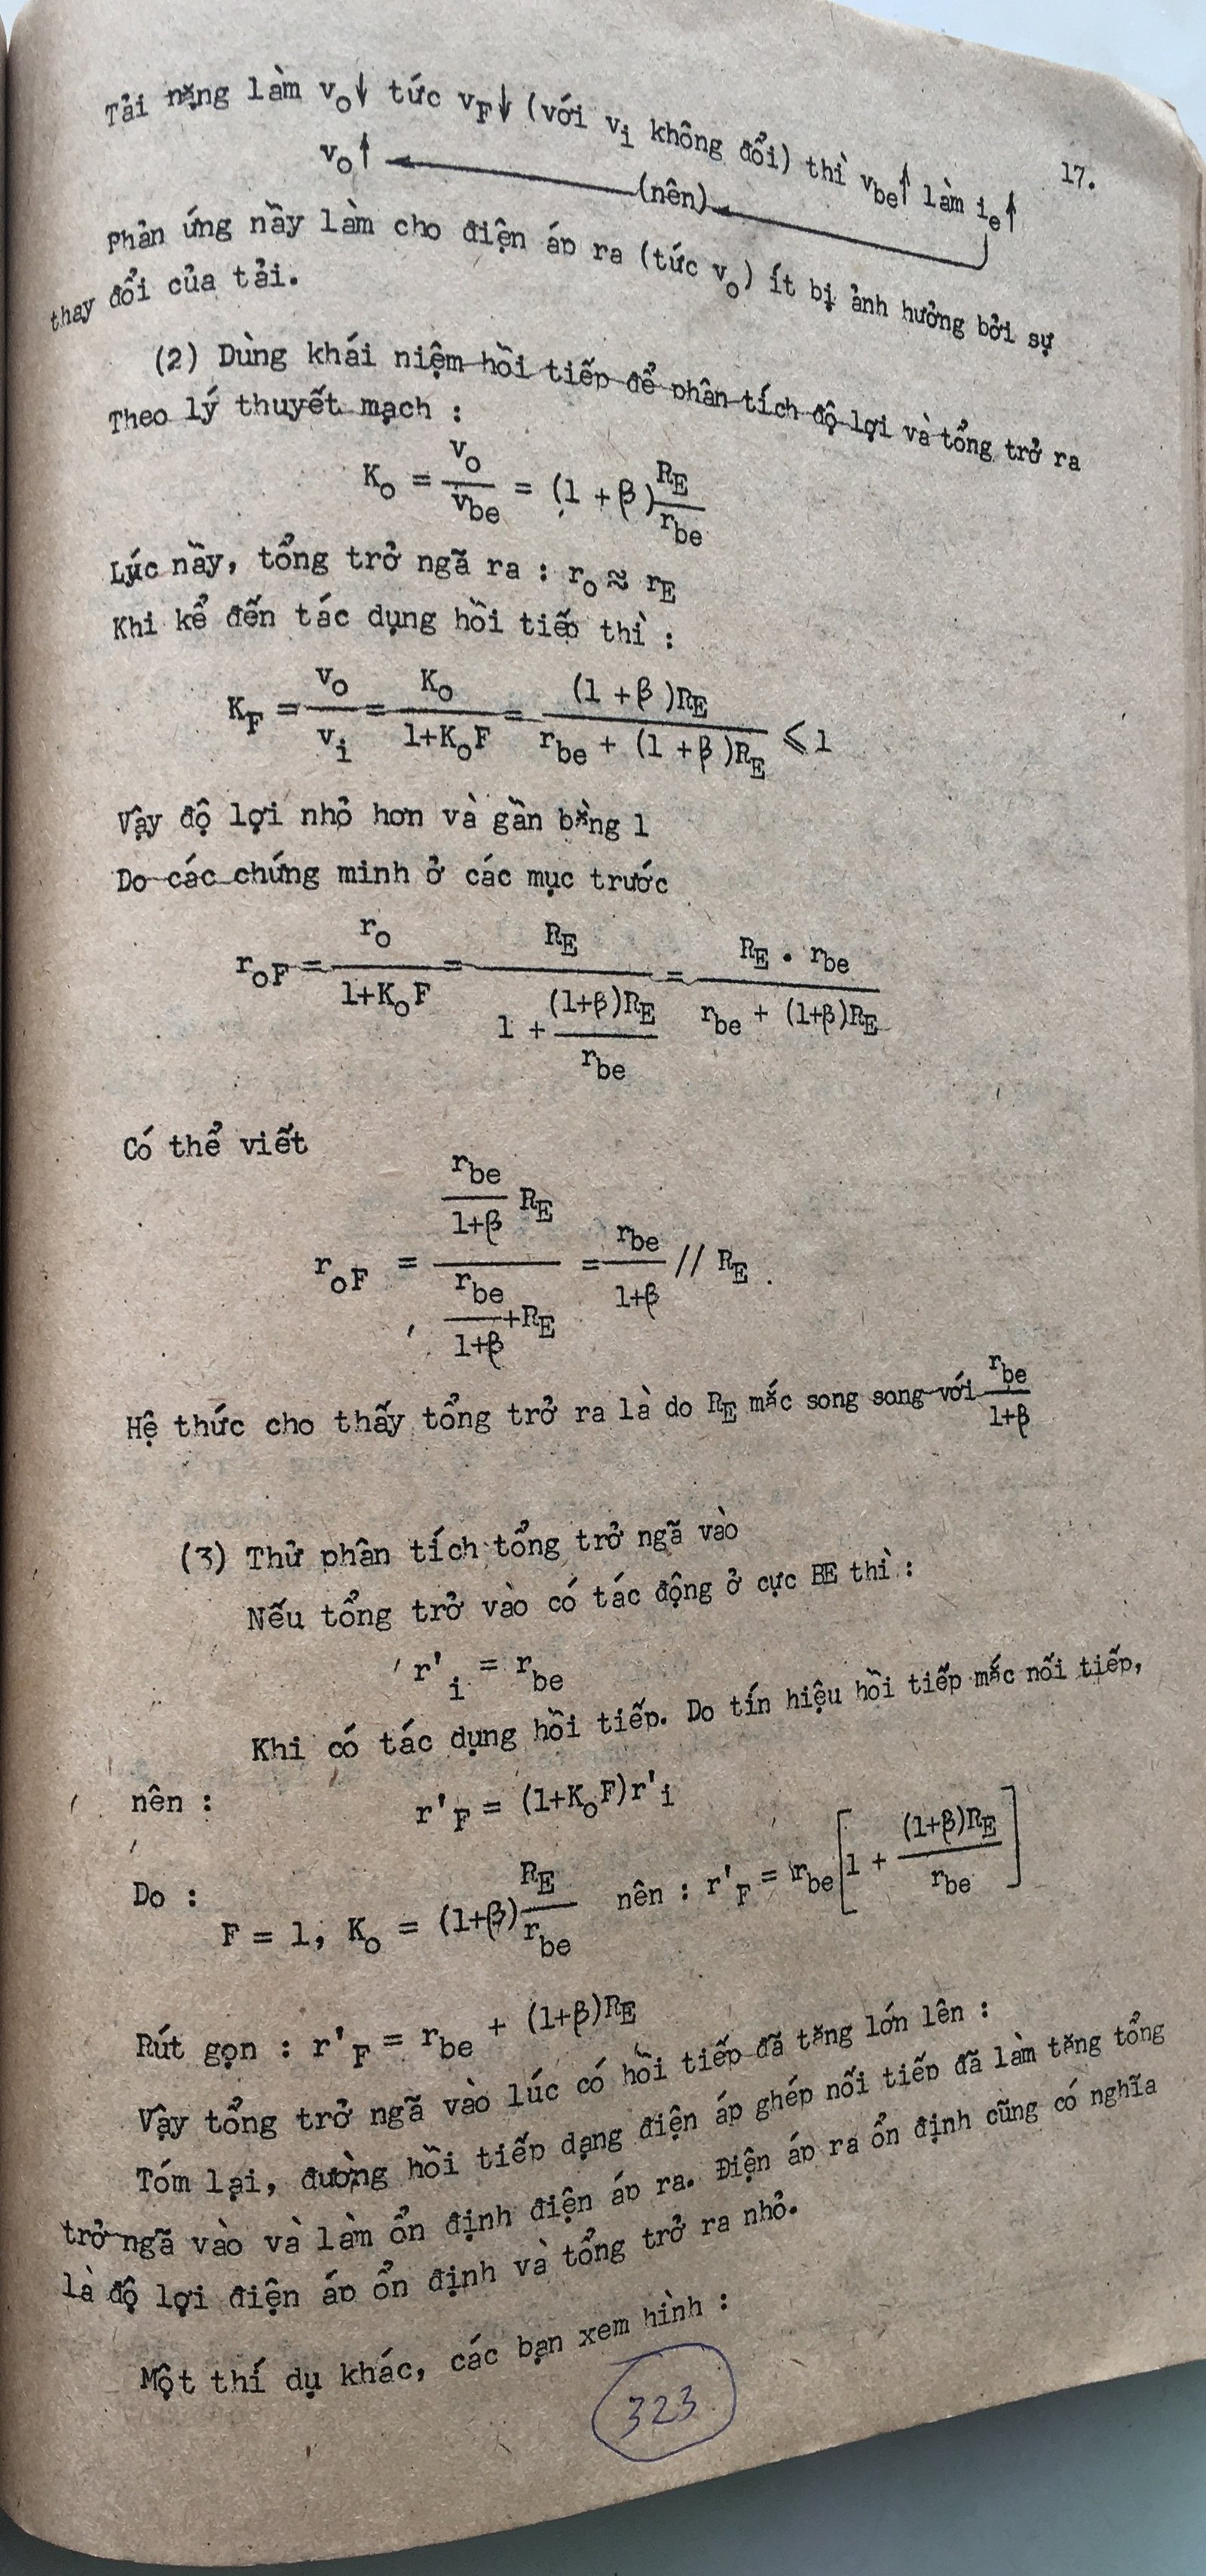 17.
Tải nặng làm v₀↓ tức v_F↓ (với v_i không đổi) thì v_be↑ làm i_e↑
v₀↑ ← (nên) ←
Phản ứng nầy làm cho điện áp ra (tức v₀) ít bị ảnh hưởng bởi sự
thay đổi của tải.
(2) Dùng khái niệm hồi tiếp để phân tích độ lợi và tổng trở ra
Theo lý thuyết mạch :
K₀ = v₀/v_be = (1 + β) R_E/r_be
Lúc nầy, tổng trở ngã ra : r₀ ≈ r_E
Khi kể đến tác dụng hồi tiếp thì :
K_F = v₀/v_i = K₀/(1+K₀F) = (1 + β)R_E/(r_be + (1 + β)R_E) ⩽ 1
Vậy độ lợi nhỏ hơn và gần bằng 1
Do các chứng minh ở các mục trước
r_oF = r₀/(1+K₀F) = R_E/(1 + (1+β)R_E/r_be) = R_E . r_be/(r_be + (1+β)R_E)
Có thể viết
r_oF = (r_be/(1+β) R_E)/(r_be/(1+β) + R_E) = r_be/(1+β) // R_E .
Hệ thức cho thấy tổng trở ra là do R_E mắc song song với r_be/(1+β)
(3) Thử phân tích tổng trở ngã vào
Nếu tổng trở vào có tác động ở cực BE thì :
r'_i = r_be
Khi có tác dụng hồi tiếp. Do tín hiệu hồi tiếp mắc nối tiếp,
nên : r'_F = (1+K₀F)r'_i
Do : F = 1, K₀ = (1+β) R_E/r_be nên : r'_F = r_be[1 + (1+β)R_E/r_be]
Rút gọn : r'_F = r_be + (1+β)R_E
Vậy tổng trở ngã vào lúc có hồi tiếp đã tăng lớn lên :
Tóm lại, đường hồi tiếp dạng điện áp ghép nối tiếp đã làm tăng tổng
trở ngã vào và làm ổn định điện áp ra. Điện áp ra ổn định cũng có nghĩa
là độ lợi điện áp ổn định và tổng trở ra nhỏ.
Một thí dụ khác, các bạn xem hình :
323